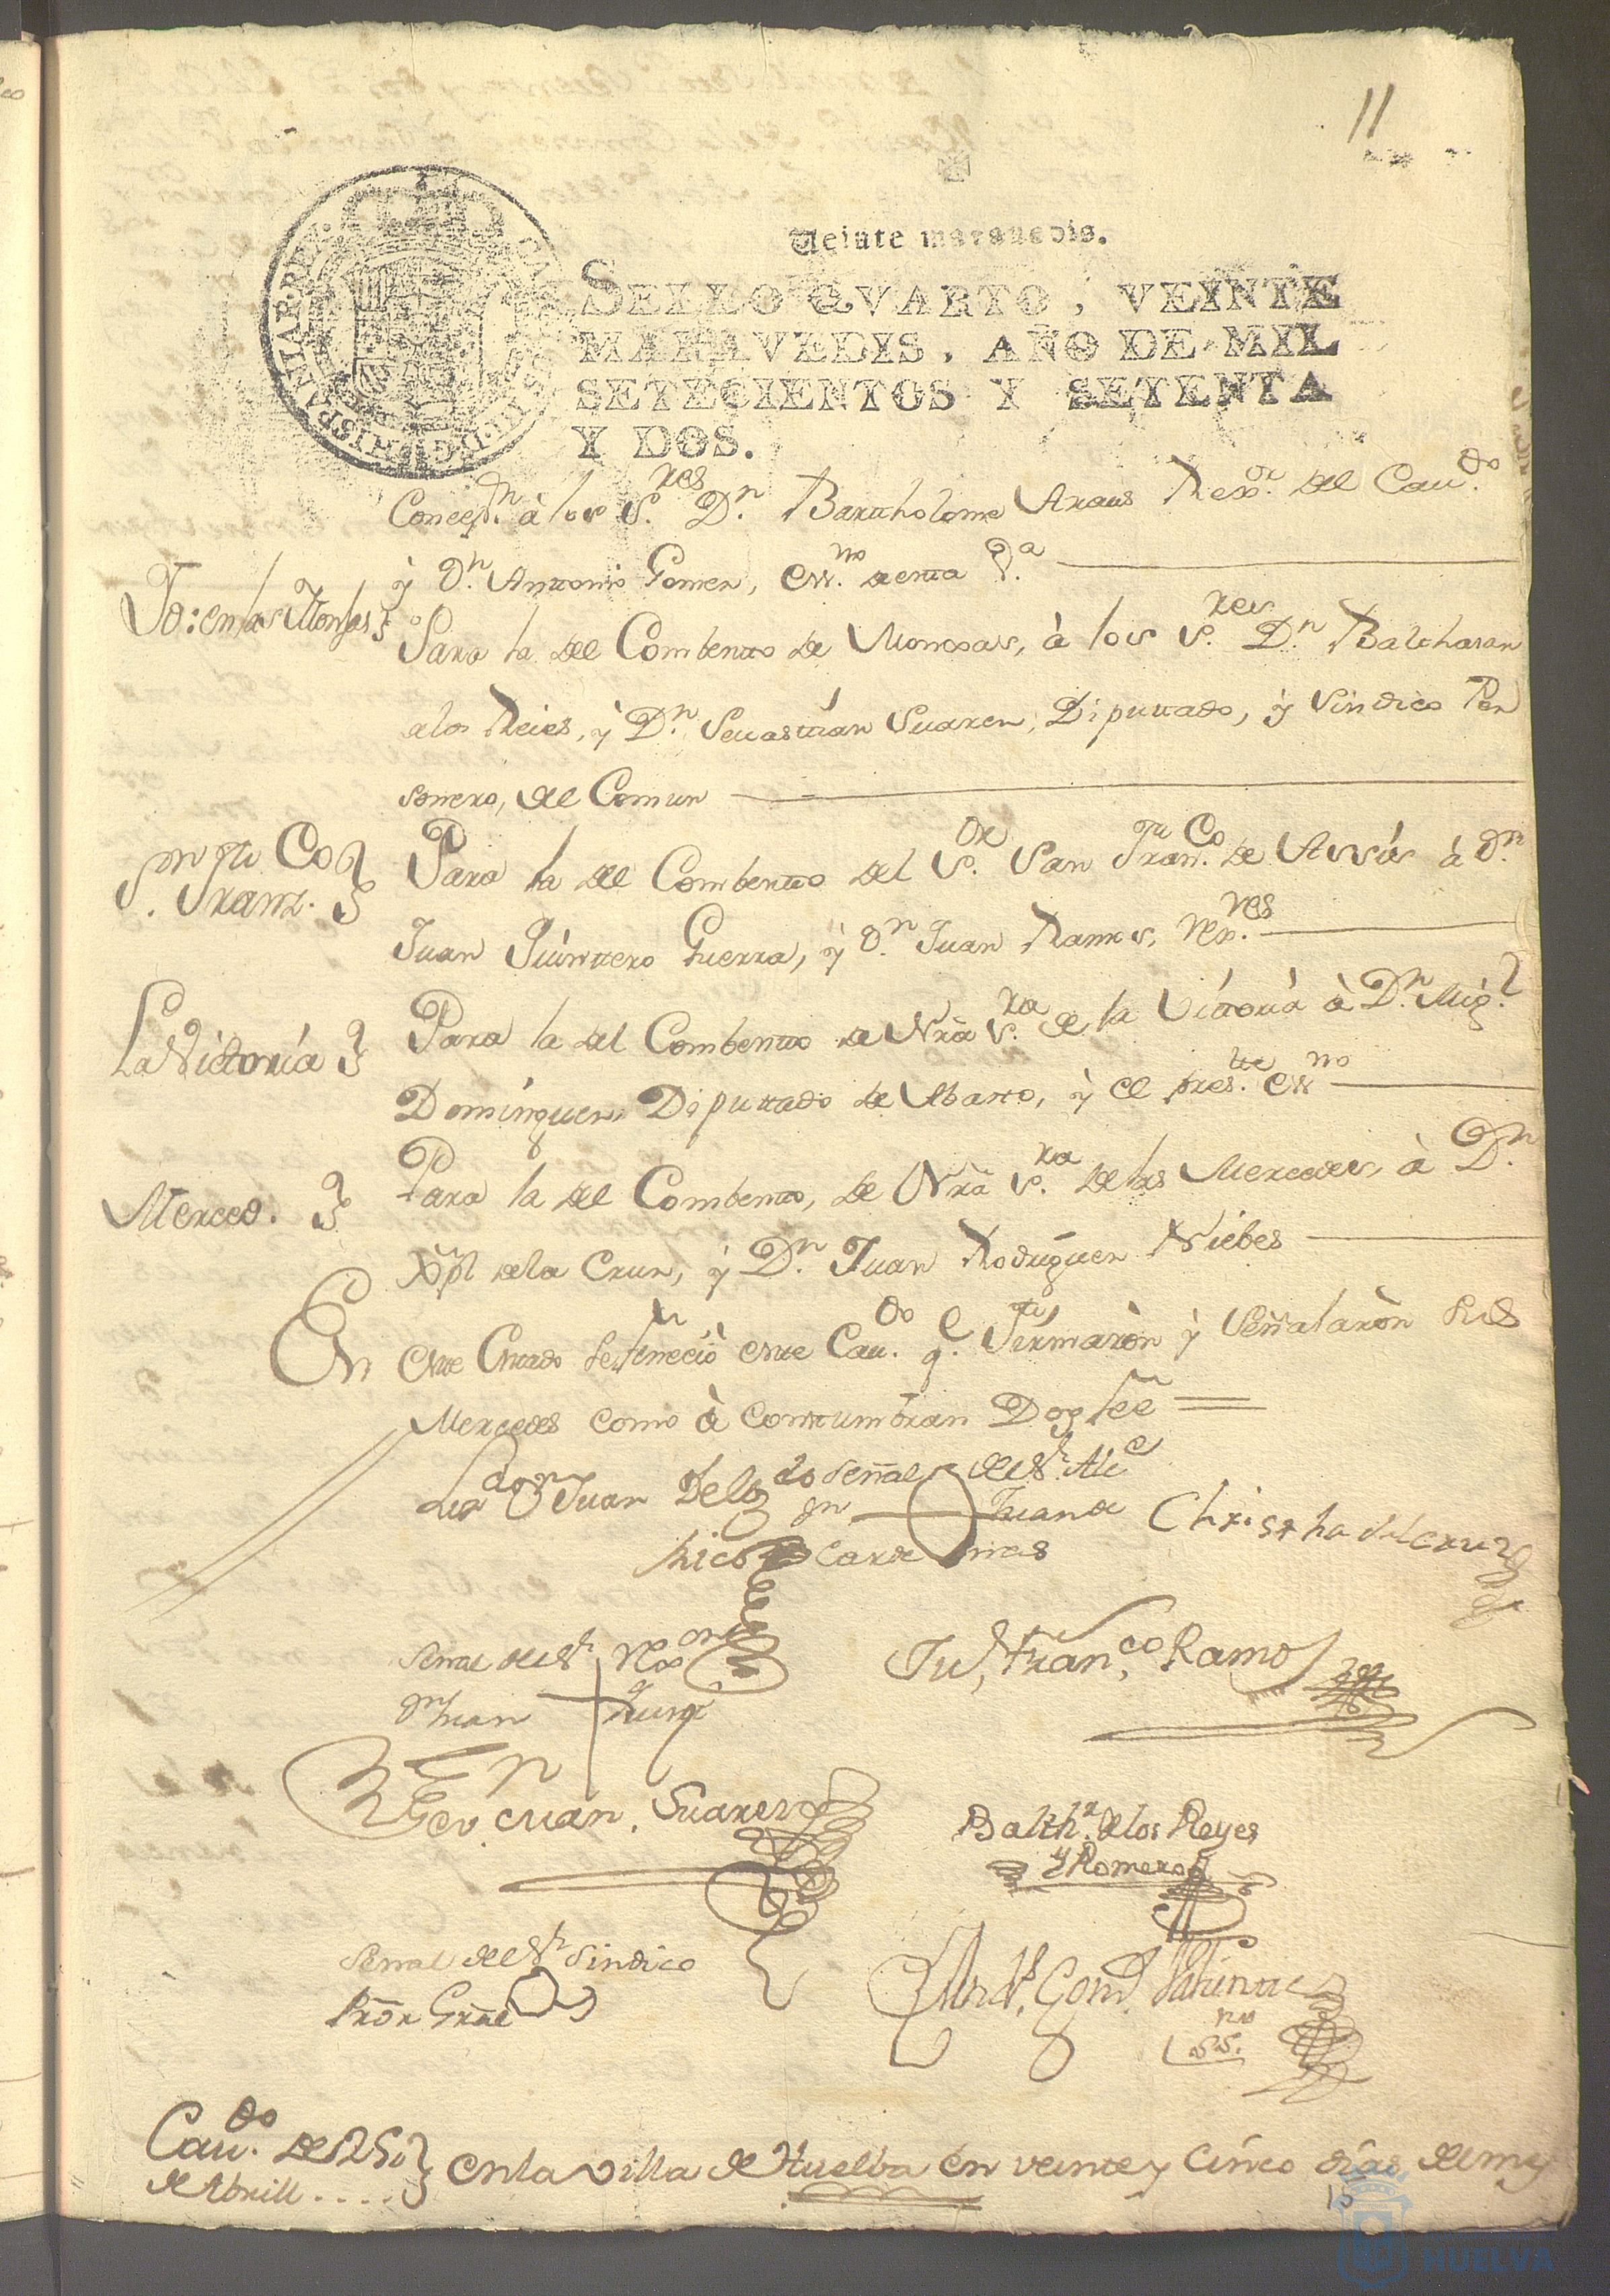 11
Veinte maravedis.
SELLO QVARTO, VEINTE
MARAVEDIS, AÑO DE MIL
SETECIENTOS Y SETENTA
Y DOS.
Concepn. à los S.res Dn. Bartholome Araus Rexor. del Cau.do
ÿ Dn. Anttonio Gomez, ess.no de esta V.a
Yd: en las Monjas
Para la del Combentto de Monxas, à los S.res Dn. Balthasar
de los Reies, ÿ Dn. Sevasttian Suarez, Diputtado, ÿ Sindico Per
sonero, del Comun
Sn. Franz.co
Para la del Combentto del S.or San Fran.co de Assis à Dn.
Juan Quinttero Guerra, ÿ Dn. Juan Ramos, Rex.res
La Victoria
Para la del Combentto de Nrã S.ra de la Vittoria à Dn. Mig.l
Dominguez, Diputtado de Abasto, ÿ el pres.tte ess.no
Merced.
Para la del Combentto, de Nrã S.ra de las Mercedes, à Dn.
Xpl de la Cruz, ÿ Dn. Juan Rodriguez Niebes
En este Estado se feneciò este Cau.do q.e Firmaròn ÿ Señalaròn sus
Mercedes como à costtumbran Doy feè
Lizdo. Dn Juan Delg.do
señal del Sr. Alc.e
Dn Juan
hico Cardenas
Christ ha de la cruz
Señal del Sr. Rexor
Dn Juan
Ju, Fran,co Ramos
Sevastian Suarez
Balthr. de los Reyes
y Romero
Señal del Sr Sindico
Prõr Grãl
SS.no
Cau.do de 25
de Abrill....
en la villa de Huelba en veinte y Cinco dias del ms
HUELVA